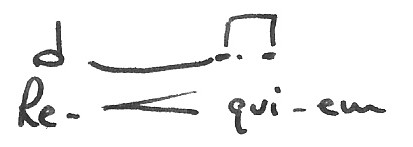 Re- qui-em